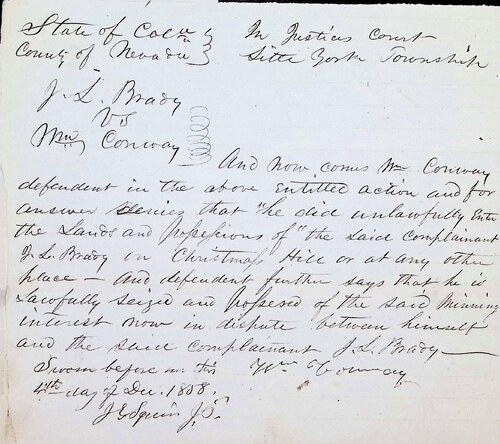 State of Calna } In Justices Court
County of Nevada } Little York Township
J. L. Brady
vs
Wm Conway
And now comes Wm Conway
defendent in the above Entitled action and for
answer denies that "he did unlawfully Enter
the Lands and posessions of" the said complainant
J. L. Brady on Christmass Hill or at any other
place - And dependent further says that he is
Lawfully seized and possesed of the said Minning
interest now in dispute between himself
and the said complainant J. L. Brady -
Sworn before me this Wm Conway
4th day of Dec. 1858.
J. P.